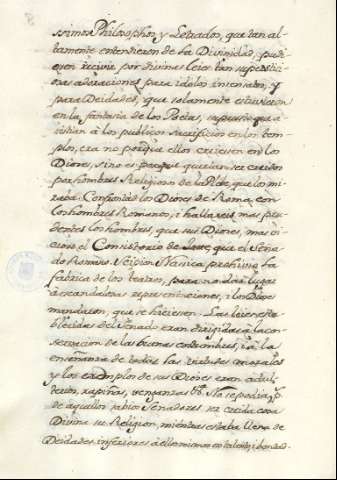 ssimos Philosophos y Letrados, que tan al-
tamente entendieron de la Divinidad, pudi
esen recivir por divinas leies tan supersticio
nas adoraciones para idolos insensatos, y
para Deidades, que solamente estuvieron
en la fantasia de los Poetas, supuesto que a-
sistian à los publicos sacrificios en los tem-
plos, era no porque ellos creiesen en los
Dioses, sino es porque querian ser creidos
por hombres Religiosos de la Plebe, que los mi
raba. Confrontad los Dioses de Roma con
los hombres Romanos, i hallareis mas pru
dentes los hombres, que sus Dioses, mas
el Consistorio de Jove, que el Sena
do Romano. Scipion Nasica prohivio la
fabrica de los teatros, para no dar lugar
à escandalosas representaciones, i los Dioses
mandaron, que se hiciesen. Las leies esta
blecidas del Senado eran dirigidas à la con
servacion de las buenas costumbres, i à la
enseñanza de todas las virtudes morales
y los exemplos de sus Dioses eran adul-
terios, rapiñas, venganzas &c. No se podia
de aquellos sabios Senadores ser creida por
Divina su Religion, mientras estaba llena de
Deidades inferiores à ellos mismos en talento i bondad.